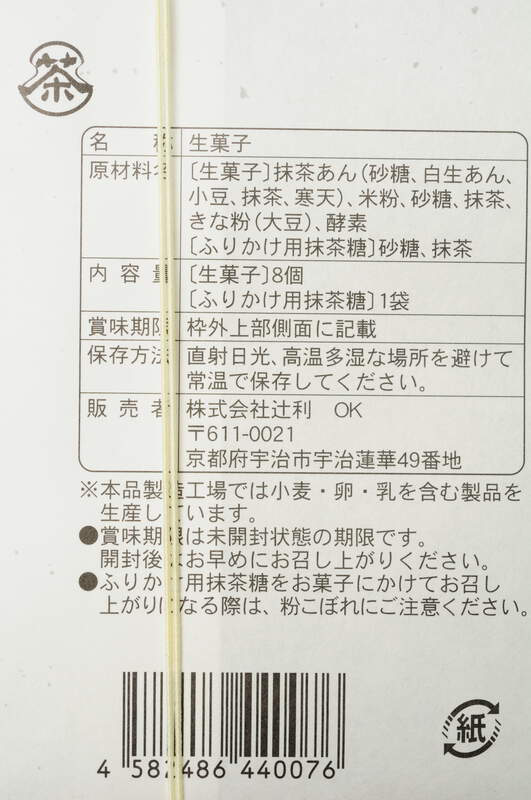 茶
名 称 生菓子
原材料名 〔生菓子〕抹茶あん(砂糖、白生あん、
小豆、抹茶、寒天)、米粉、砂糖、抹茶、
きな粉(大豆)、酵素
〔ふりかけ用抹茶糖〕砂糖、抹茶
内容量 〔生菓子〕8個
〔ふりかけ用抹茶糖〕1袋
賞味期限 枠外上部側面に記載
保存方法 直射日光、高温多湿な場所を避けて
常温で保存してください。
販売者 株式会社辻利 OK
〒611-0021
京都府宇治市宇治蓮華49番地
※本品製造工場では小麦・卵・乳を含む製品を
生産しています。
●賞味期限は未開封状態の期限です。
開封後はお早めにお召し上がりください。
●ふりかけ用抹茶糖をお菓子にかけてお召し
上がりになる際は、粉こぼれにご注意ください。
4 582486 440076
紙